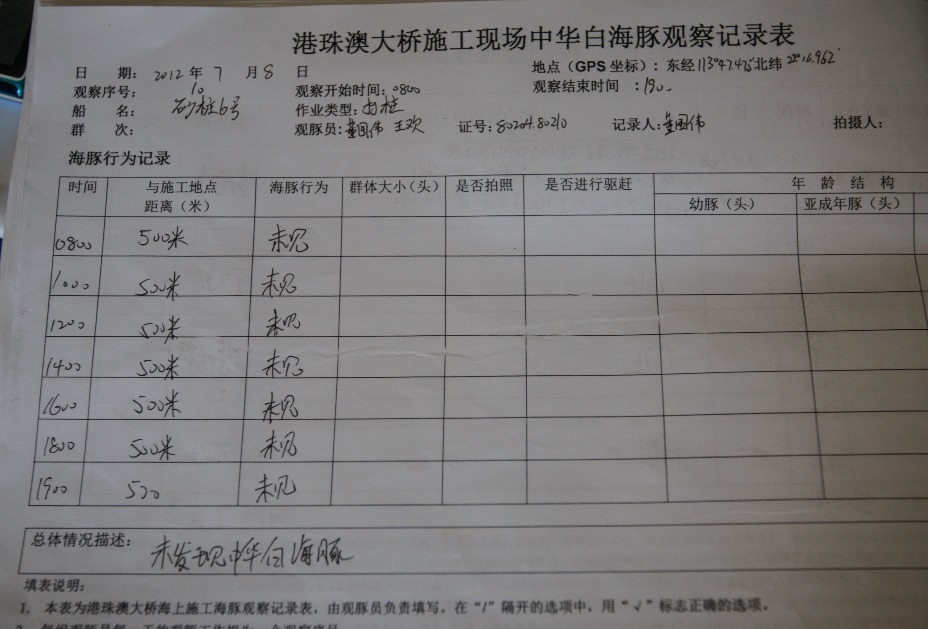 港珠澳大桥施工现场中华白海豚观察记录表
日 期: 2012 年 7 月 8 日 地点（GPS 坐标）: 东经 113°47.475' 北纬 22°16.962'
观察序号: 10 观察开始时间: 0800 观察结束时间 : 1900
船 名: 砂桩6号 作业类型: 打桩
群 次: 观豚员: 董国伟 王欢 证号: 80204.80210 记录人: 董国伟 拍摄人:
海豚行为记录
时间 与施工地点距离（米） 海豚行为 群体大小（头） 是否拍照 是否进行驱赶 年 龄 结 构
幼豚（头） 亚成年豚（头）
0800 500米 未见
1000 500米 未见
1200 500米 未见
1400 500米 未见
1600 500米 未见
1800 500米 未见
1900 500 未见
总体情况描述: 未发现中华白海豚
填表说明:
1. 本表为港珠澳大桥海上施工海豚观察记录表，由观豚员负责填写。在“/”隔开的选项中，用“√”标志正确的选项。